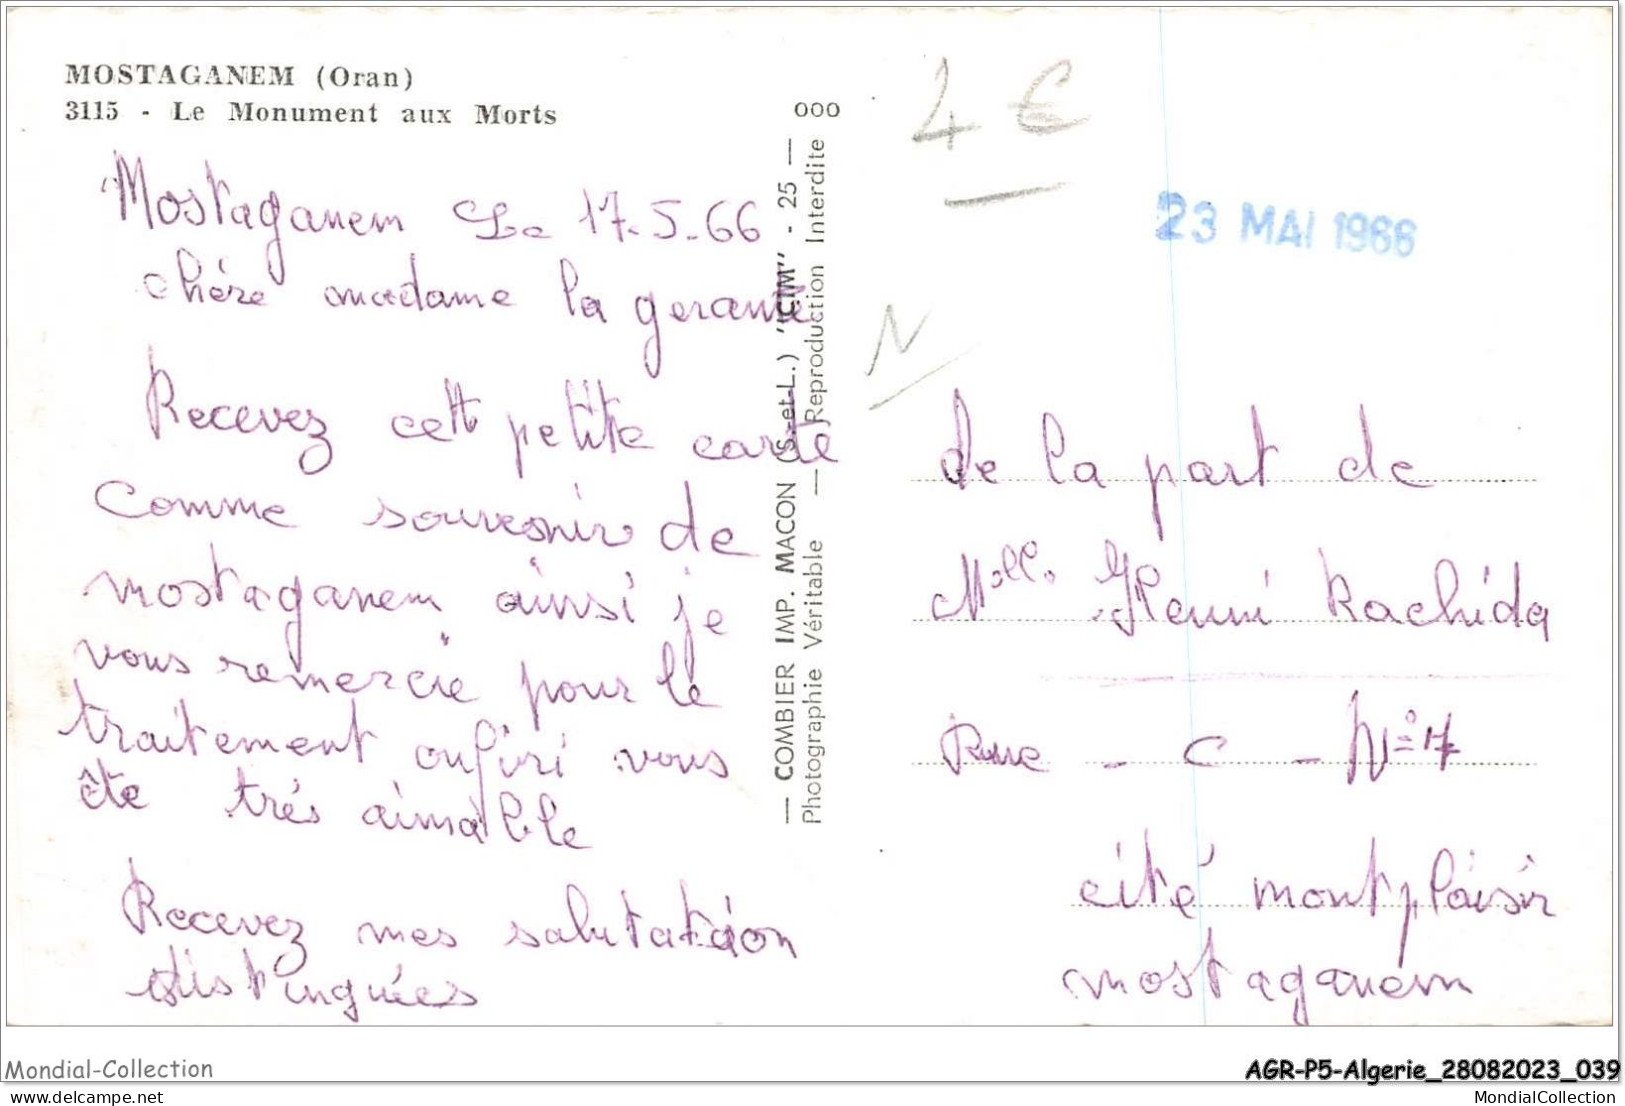 MOSTAGANEM (Oran)
3115 - Le Monument aux Morts
Mostaganem Le 17.5.66
chére madame la gerante
Recevez cett petite carte
comme souvenir de
mostaganem ainsi je
vous remercie pour le
traitement
vous
éte trés aimable
Recevez mes salutation
distinguées
000
— COMBIER IMP. MACON (S.-et-L.) "CIM" - 25 —
Photographie Véritable — Reproduction Interdite
4 €
23 MAI 1966
N
de la part de
Melle Rachida
Rue - C - N° 17
cité montplaisir
mostaganem
Mondial-Collection
AGR-P5-Algerie_28082023_039
www.delcampe.net
MondialCollection